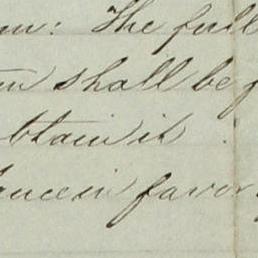 The full
shall be
btain it.
ance in favor